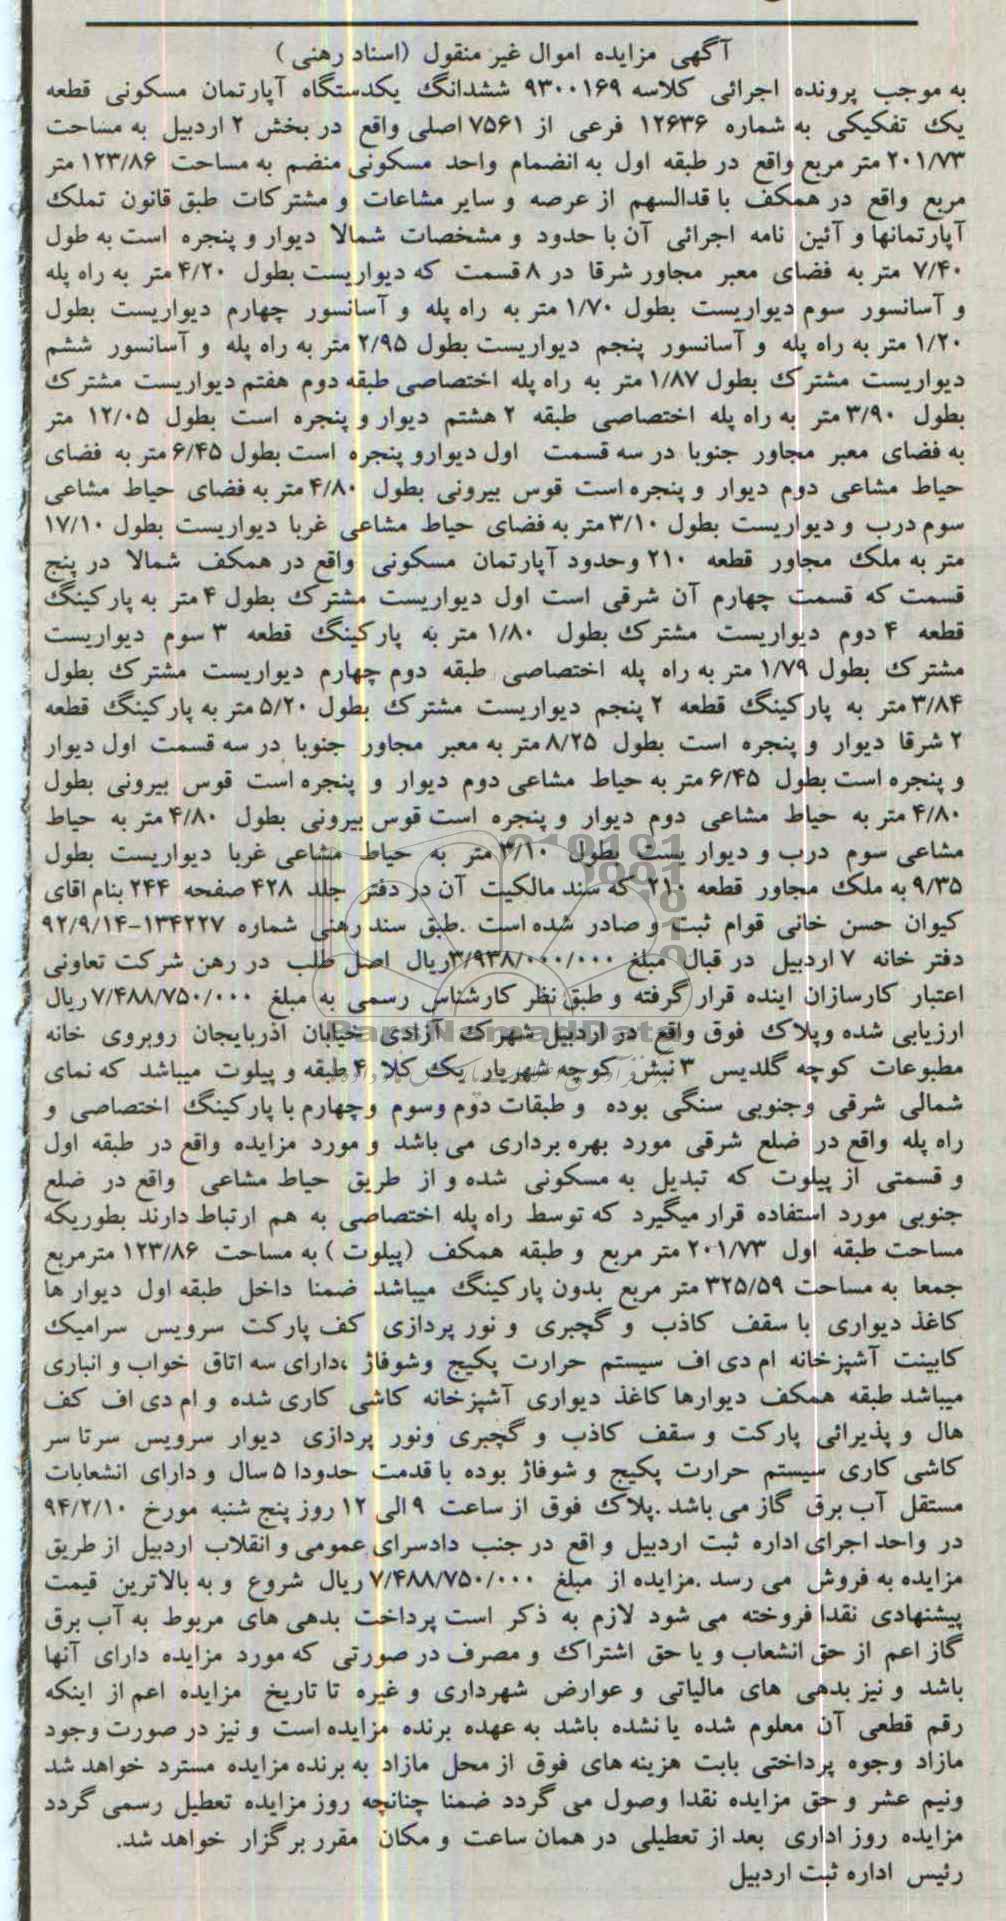 آگهی مزایده اموال غیر منقول (اسناد رهنی )
به موجب پرونده اجرائی کلاسه ۹۳۰۰۱۶۹ ششدانگ یکدستگاه آپارتمان مسکونی قطعه
یک تفکیکی به شماره ۱۲۶۳۶ فرعی از ۷۵۶۱ اصلی واقع در بخش ۲ اردبیل به مساحت
۲۰۱/۷۳ متر مربع واقع در طبقه اول به انضمام واحد مسکونی منضم به مساحت ۱۲۳/۸۶ متر
مربع واقع در همکف با قدالسهم از عرصه و سایر مشاعات و مشترکات طبق قانون تملک
آپارتمانها و آئین نامه اجرائی آن با حدود و مشخصات شمالا دیوار و پنجره است به طول
۷/۴۰ متر به فضای معبر مجاور شرقا در ۸ قسمت که دیواریست بطول ۴/۲۰ متر به راه پله
و آسانسور سوم دیواریست بطول ۱/۷۰ متر به راه پله و آسانسور چهارم دیواریست بطول
۱/۲۰ متر به راه پله و آسانسور پنجم دیواریست بطول ۲/۹۵ متر به راه پله و آسانسور ششم
دیواریست مشترک بطول ۱/۸۷ متر به راه پله اختصاصی طبقه دوم هفتم دیواریست مشترک
بطول ۳/۹۰ متر به راه پله اختصاصی طبقه ۲ هشتم دیوار و پنجره است بطول ۱۲/۰۵ متر
به فضای معبر مجاور جنوبا در سه قسمت اول دیوارو پنجره است بطول ۶/۴۵ متر به فضای
حیاط مشاعی دوم دیوار و پنجره است قوس بیرونی بطول ۴/۸۰ متر به فضای حیاط مشاعی
سوم درب و دیواریست بطول ۳/۱۰ متر به فضای حیاط مشاعی غربا دیواریست بطول ۱۷/۱۰
متر به ملک مجاور قطعه ۲۱۰ وحدود آپارتمان مسکونی واقع در همکف شمالا در پنج
قسمت که قسمت چهارم آن شرقی است اول دیواریست مشترک بطول ۴ متر به پارکینگ
قطعه ۴ دوم دیواریست مشترک بطول ۱/۸۰ متر به پارکینگ قطعه ۳ سوم دیواریست
مشترک بطول ۱/۷۹ متر به راه پله اختصاصی طبقه دوم چهارم دیواریست مشترک بطول
۳/۸۴ متر به پارکینگ قطعه ۲ پنجم دیواریست مشترک بطول ۵/۲۰ متر به پارکینگ قطعه
۲ شرقا دیوار و پنجره است بطول ۸/۲۵ متر به معبر مجاور جنوبا در سه قسمت اول دیوار
و پنجره است بطول ۶/۴۵ متر به حیاط مشاعی دوم دیوار و پنجره است قوس بیرونی بطول
۴/۸۰ متر به حیاط مشاعی دوم دیوار و پنجره است قوس بیرونی بطول ۴/۸۰ متر به حیاط
مشاعی سوم درب و دیوار یست بطول ۳/۱۰ متر به حیاط مشاعی غربا دیواریست بطول
۹/۳۵ به ملک مجاور قطعه ۲۱۰ که سند مالکیت آن در دفتر جلد ۴۲۸ صفحه ۲۴۴ بنام اقای
کیوان حسن خانی قوام ثبت و صادر شده است .طبق سند رهنی شماره ۱۳۴۲۲۷-۹۲/۹/۱۴
دفتر خانه ۷ اردبیل در قبال مبلغ ۳/۹۳۸/۰۰۰/۰۰۰ریال اصل طلب در رهن شرکت تعاونی
اعتبار کارسازان اینده قرار گرفته و طبق نظر کارشناس رسمی به مبلغ ۷/۴۸۸/۷۵۰/۰۰۰ریال
ارزیابی شده وپلاک فوق واقع در اردبیل شهرک آزادی خیابان اذربایجان روبروی خانه
مطبوعات کوچه گلدیس ۳ نبش کوچه شهریار یک کلا ۴ طبقه و پیلوت میباشد که نمای
شمالی شرقی وجنوبی سنگی بوده و طبقات دوم وسوم وچهارم با پارکینگ اختصاصی و
راه پله واقع در ضلع شرقی مورد بهره برداری می باشد و مورد مزایده واقع در طبقه اول
و قسمتی از پیلوت که تبدیل به مسکونی شده و از طریق حیاط مشاعی واقع در ضلع
جنوبی مورد استفاده قرار میگیرد که توسط راه پله اختصاصی به هم ارتباط دارند بطوریکه
مساحت طبقه اول ۲۰۱/۷۳ متر مربع و طبقه همکف (پیلوت ) به مساحت ۱۲۳/۸۶ مترمربع
جمعا به مساحت ۳۲۵/۵۹ متر مربع بدون پارکینگ میباشد ضمنا داخل طبقه اول دیوار ها
کاغذ دیواری با سقف کاذب و گچبری و نور پردازی کف پارکت سرویس سرامیک
کابینت آشپزخانه ام دی اف سیستم حرارت پکیج وشوفاژ ،دارای سه اتاق خواب و انباری
میباشد طبقه همکف دیوارها کاغذ دیواری آشپزخانه کاشی کاری شده و ام دی اف کف
هال و پذیرائی پارکت و سقف کاذب و گچبری ونور پردازی دیوار سرویس سرتا سر
کاشی کاری سیستم حرارت پکیج و شوفاژ بوده با قدمت حدودا ۵ سال و دارای انشعابات
مستقل آب برق گاز می باشد .پلاک فوق از ساعت ۹ الی ۱۲ روز پنج شنبه مورخ ۹۴/۲/۱۰
در واحد اجرای اداره ثبت اردبیل و اقع در جنب دادسرای عمومی و انقلاب اردبیل از طریق
مزایده به فروش می رسد .مزایده از مبلغ ۷/۴۸۸/۷۵۰/۰۰۰ ریال شروع و به بالاترین قیمت
پیشنهادی نقدا فروخته می شود لازم به ذکر است پرداخت بدهی های مربوط به آب برق
گاز اعم از حق انشعاب و یا حق اشتراک و مصرف در صورتی که مورد مزایده دارای آنها
باشد و نیز بدهی های مالیاتی و عوارض شهرداری و غیره تا تاریخ مزایده اعم از اینکه
رقم قطعی آن معلوم شده یا نشده باشد به عهده برنده مزایده است و نیز در صورت وجود
مازاد وجوه پرداختی بابت هزینه های فوق از محل مازاد به برنده مزایده مسترد خواهد شد
ونیم عشر و حق مزایده نقدا وصول می گردد ضمنا چنانچه روز مزایده تعطیل رسمی گردد
مزایده روز اداری بعد از تعطیلی در همان ساعت و مکان مقرر برگزار خواهد شد.
رئیس اداره ثبت اردبیل
ParsNamadData